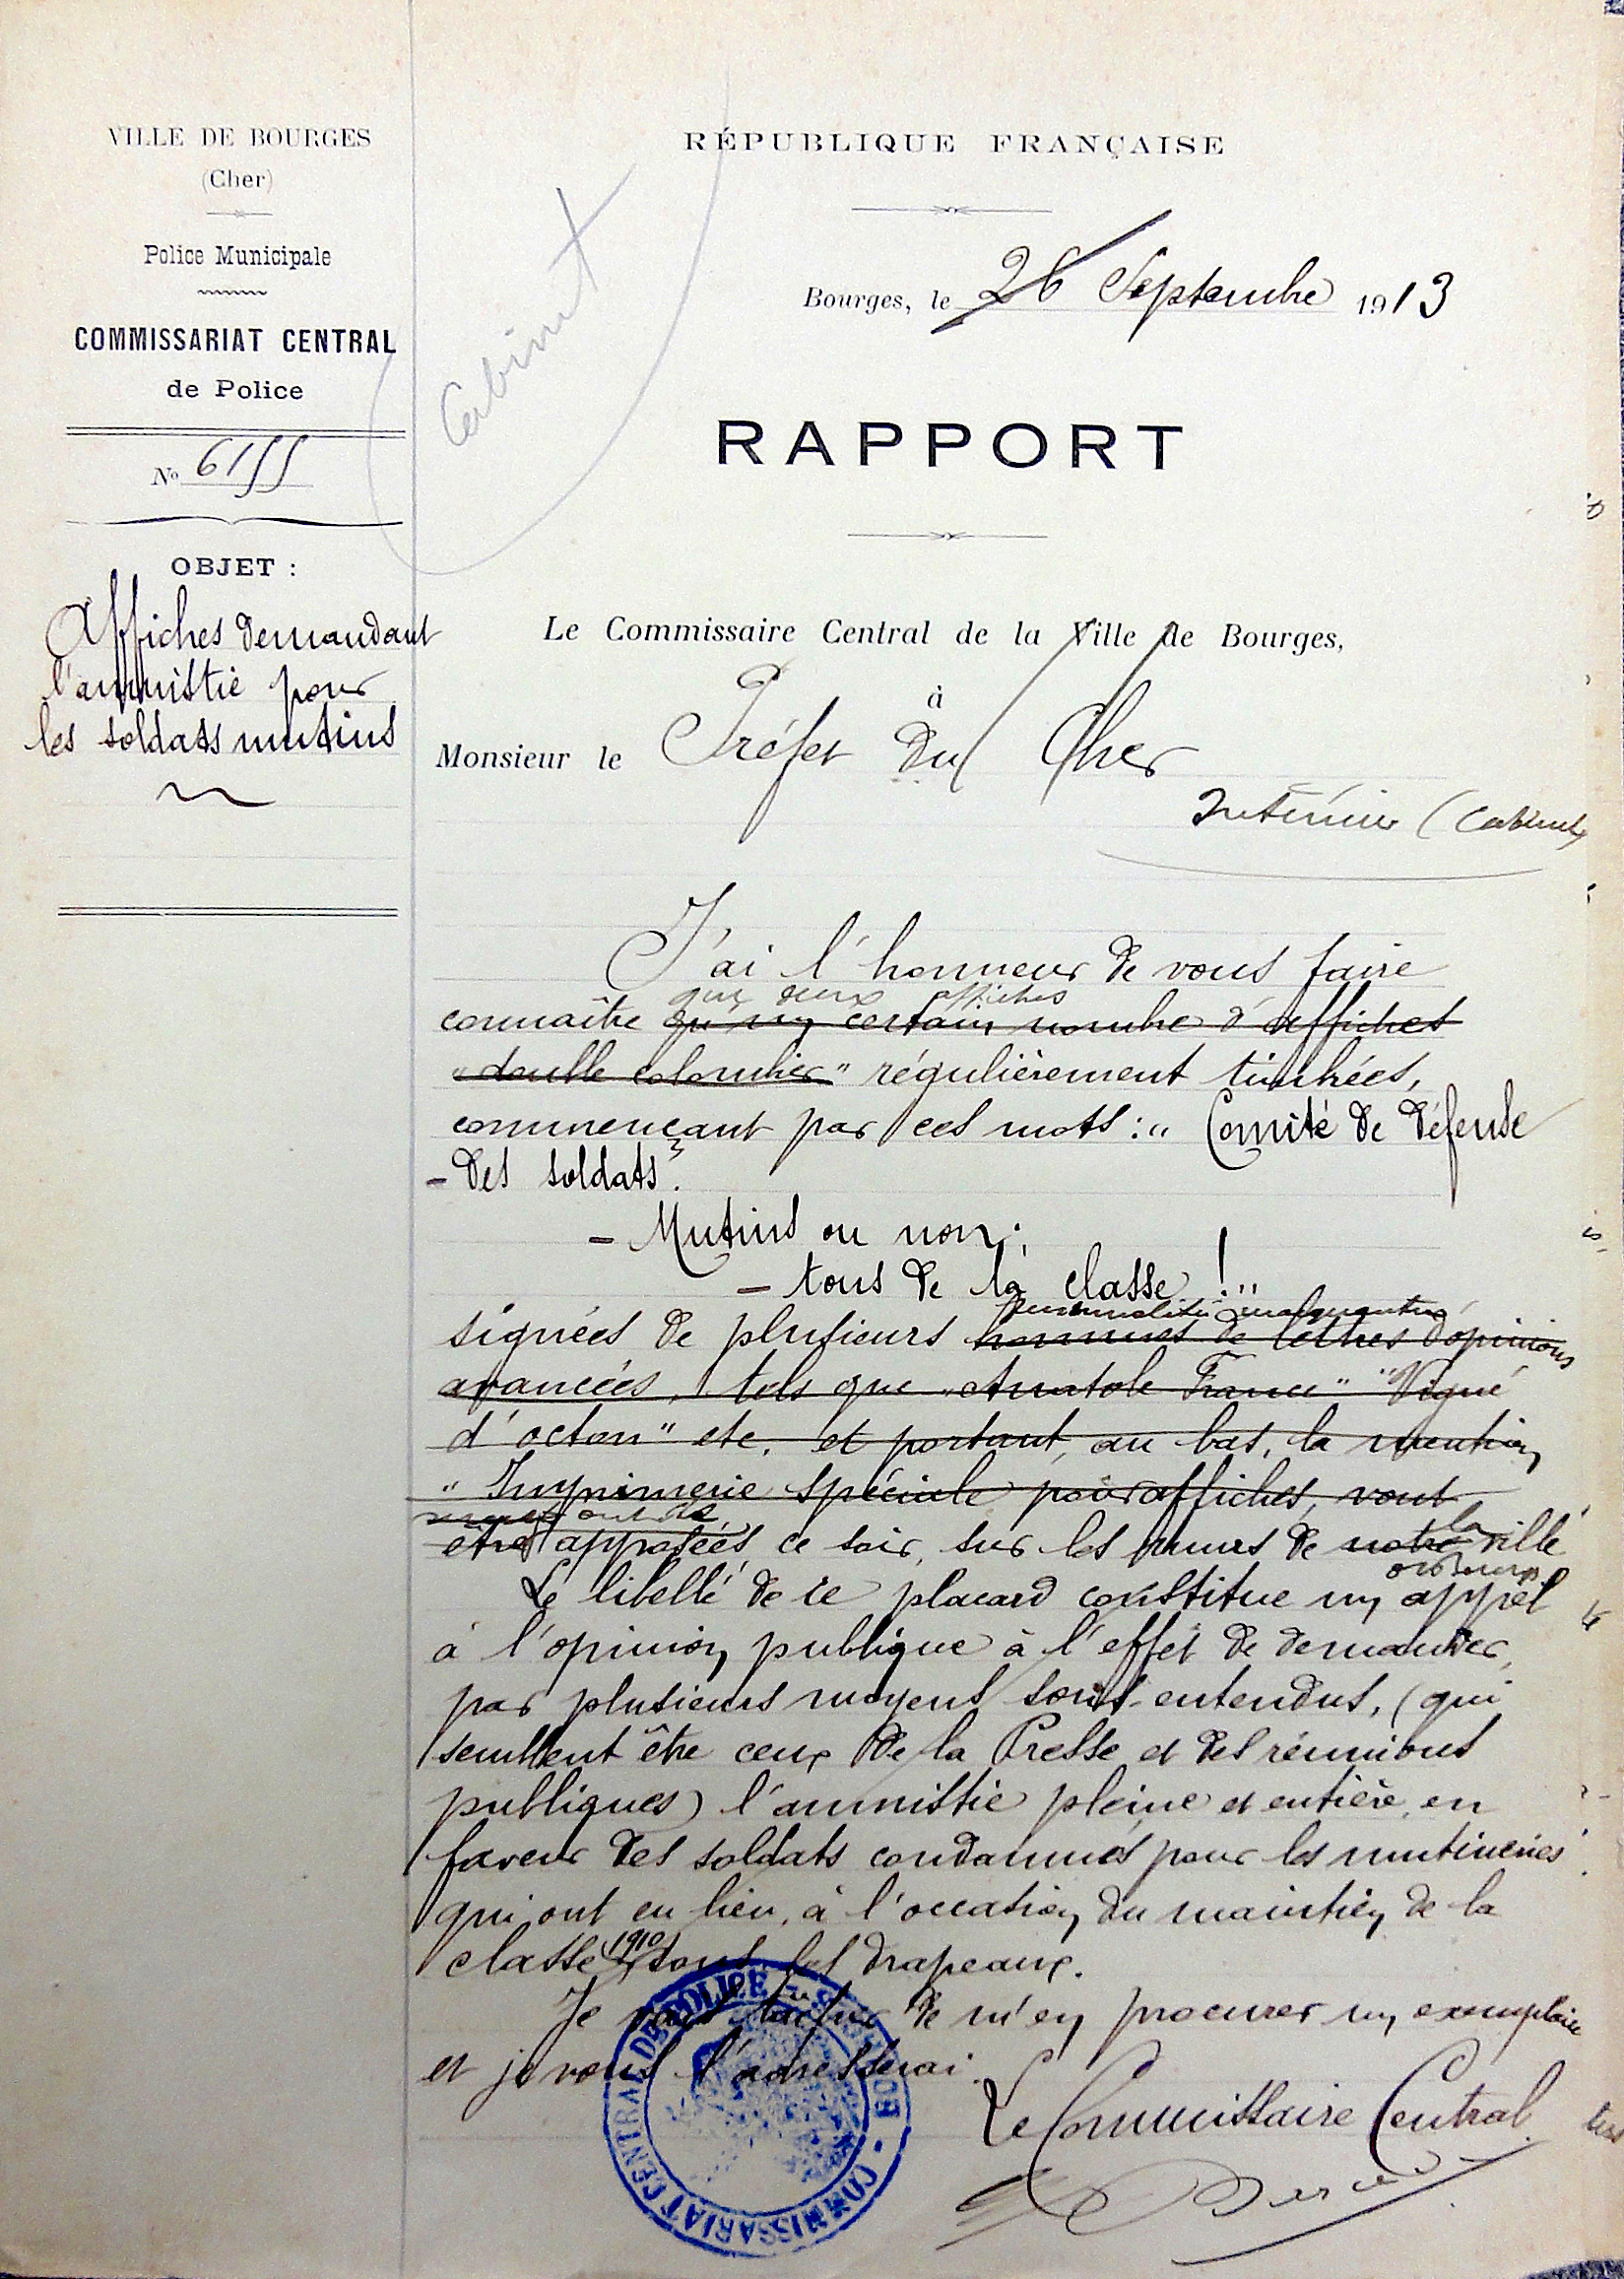 VILLE DE BOURGES
(Cher)
Police Municipale
COMMISSARIAT CENTRAL
de Police
No 6155
OBJET :
Affiches demandant
l'amnistie pour
les soldats mutins
Cabinet
RÉPUBLIQUE FRANÇAISE
Bourges, le 26 Septembre 1913
RAPPORT
Le Commissaire Central de la Ville de Bourges,
à
Monsieur le Préfet du Cher
Intérieur (Cabinet)
J'ai l'honneur de vous faire
que deux affiches
connaître qu'un certain nombre d'affiches
"double colombier" régulièrement timbrées,
commençant par ces mots : " Comité de défense
- des soldats".
- Mutins ou non ;
- tous de la classe ! "
signées de plusieurs hommes de lettres d'opinions
avancées, tels que "Anatole France" "Vigné
d'octon" etc. et portant, au bas, la mention
" Imprimerie spéciale pour affiches, vont
ont été
être apposées ce soir, sur les murs de notre ville
la
de Bourges
Le libellé de ce placard constitue un appel
à l'opinion publique à l'effet de demander,
par plusieurs moyens sous-entendus, (qui
semblent être ceux de la Presse et des réunions
publiques) l'amnistie pleine et entière, en
faveur des soldats condamnés pour les mutineries
qui ont eu lieu, à l'occasion du maintien de la
classe 1910 sous les drapeaux.
Je vais tâcher de m'en procurer un exemplaire
et je vous l'adresserai.
Le Commissaire Central
COMMISSARIAT CENTRAL DE POLICE